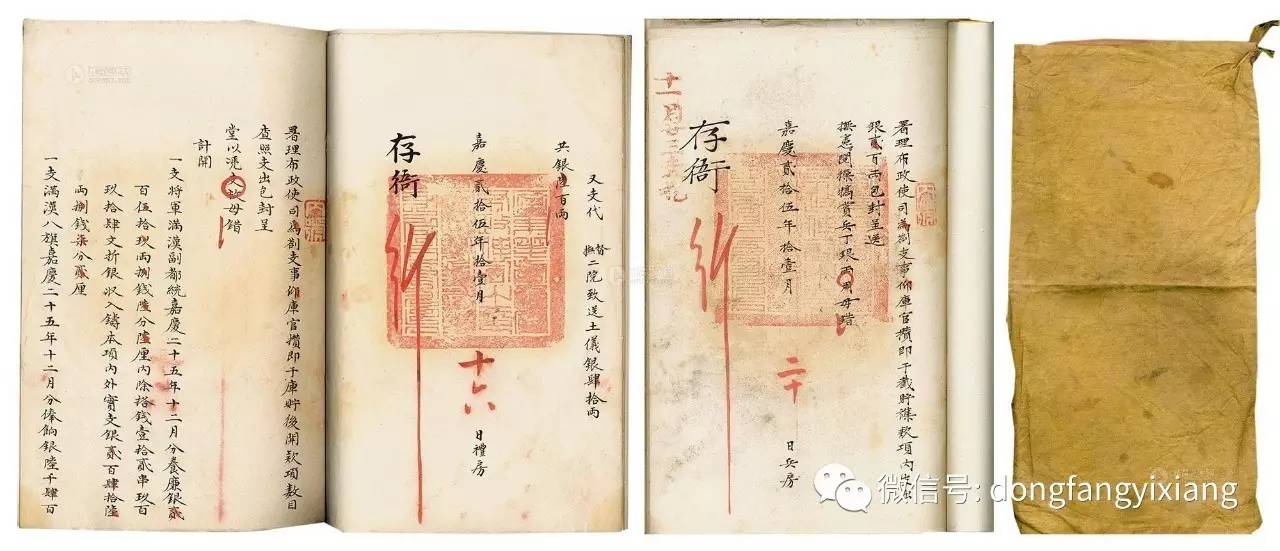 又支代
督撫二院致送土儀銀肆拾兩
共銀陸百兩
嘉慶貳拾伍年拾壹月
十六
日禮房
存衙
署理布政使司為劄支事仰庫官攢即于庫貯後開欵項數目
查照支出包封呈
堂以憑
毋錯
計開
一支將軍滿漢副都統嘉慶二十五年十二月分養廉銀貳
百伍拾玖兩捌錢陸分陸厘內除搭錢壹拾貳串玖百
玖拾肆文折銀收入鑄本項內外實支銀貳百肆拾陸
兩捌錢柒分貳厘
一支滿漢八旗嘉慶二十五年十二月分俸餉銀陸千肆百
署理布政使司為劄支事仰庫官攢即于截貯謀欵項內
銀貳百兩包封呈送
撫憲閱操犒賞兵丁
毋錯
嘉慶貳拾伍年拾壹月
二十
日兵房
存衙
十一月廿三
微信号: dongfangyixiang